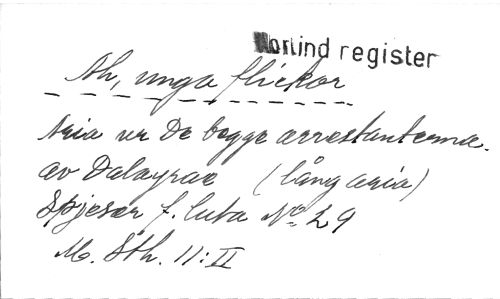 Norlind register
Ah, unga flickor
Aria ur De begge arrestanterna.
av Dalayrac (lång aria)
f. luta No 29
M. Sth. 11:II